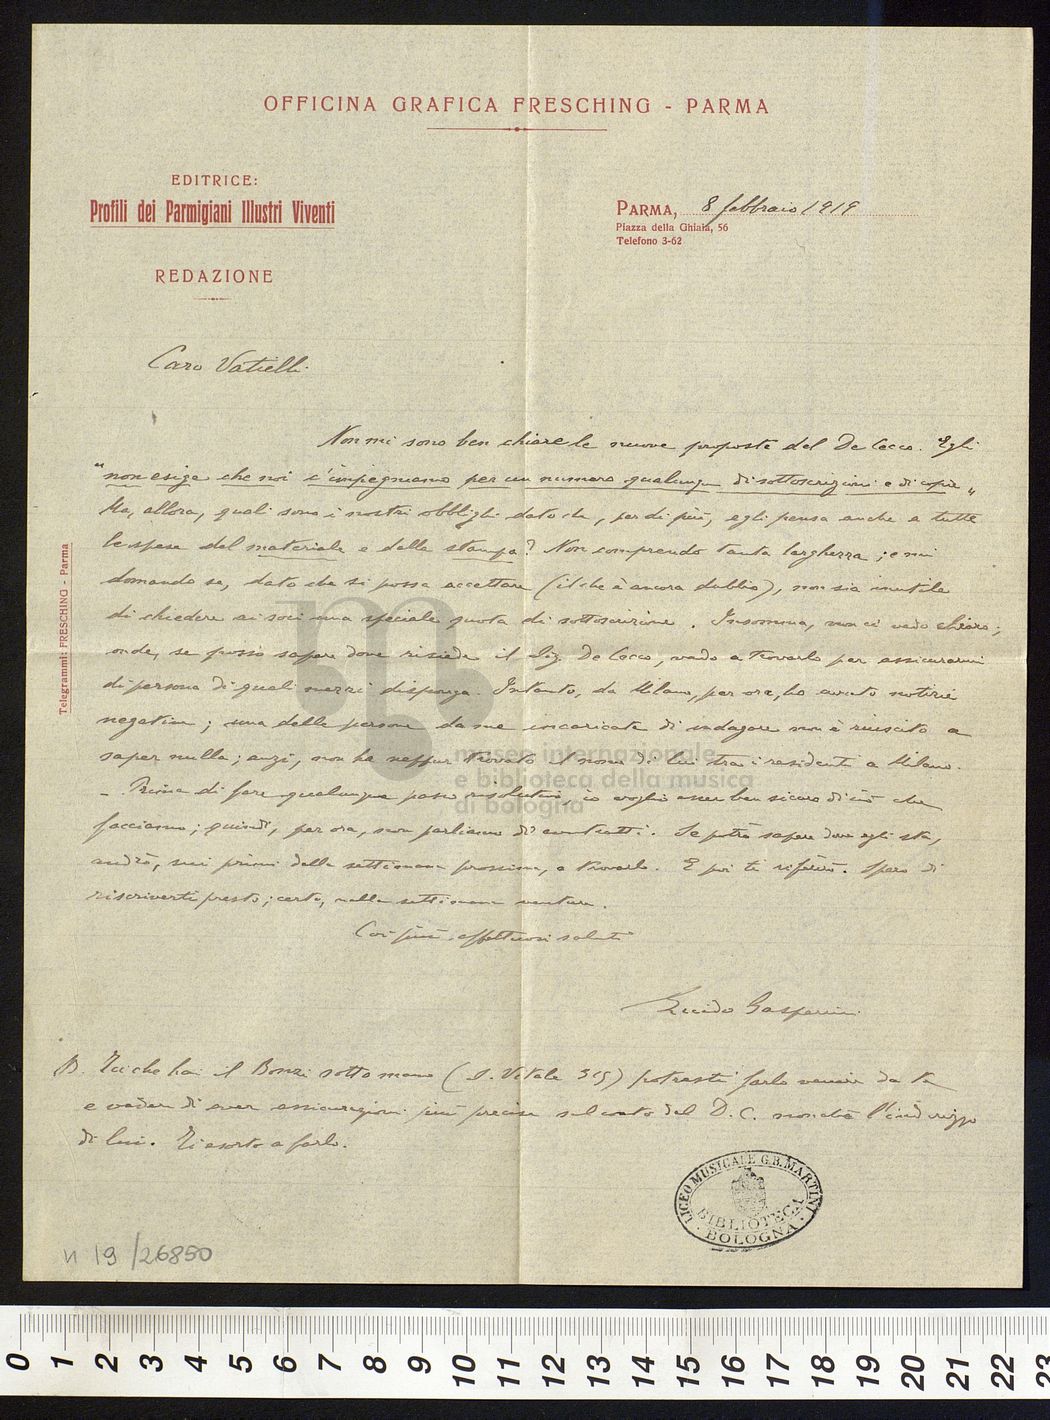 OFFICINA GRAFICA FRESCHING - PARMA
EDITRICE:
Profili dei Parmigiani Illustri Viventi
REDAZIONE
PARMA, 8 febbraio 1919
Piazza della Ghiaia, 56
Telefono 3-62
Telegrammi: FRESCHING - Parma
Caro Vatielli
Non mi sono ben chiare le nuove proposte del De Cecco. Egli
"non esige che noi c'impegniamo per un numero qualunque di sottoscrizioni e di copie"
Ma, allora, quali sono i nostri obblighi dato che, per di più, egli pensa anche a tutte
le spese del materiale e della stampa? Non comprendo tanta larghezza; e mi
domando se, dato che si possa accettare (il che è ancora dubbio), non sia inutile
di chiedere ai soci una speciale quota di sottoscrizione. Insomma, non ci vedo chiaro;
onde, se posso sapere dove risieda il Sig. De Cecco, vado a trovarlo per assicurarmi
di persona di quali mezzi disponga. Intanto, da Milano, per ora, ho avuto notizie
negative; una delle persone da me incaricate di indagare non è riuscita a
saper nulla; anzi, non ha neppur trovato il nome di lui tra i residenti a Milano.
- Prima di fare qualunque passo risolutivo, io voglio esser ben sicuro di ciò che
facciamo; quindi, per ora, non parliamo di contratti. Se potrò sapere dove egli sta,
andrò, nei primi della settimana prossima, a trovarlo. E poi ti riferirò. Spero di
riscriverti presto; certo, nella settimana ventura.
Coi più affettuosi saluti
Guido Gasperini
Tu che hai il Bonzi sotto mano (S. Vitale 315) potresti farlo venire da te
e vedere di aver assicurazioni più precise sul conto del D. C. nonchè l'indirizzo
di lui. Ti esorto a farlo.
LICEO MUSICALE G.B. MARTINI
BIBLIOTECA
BOLOGNA
n 19/26850
museo internazionale
e biblioteca della musica
di bologna
0 1 2 3 4 5 6 7 8 9 10 11 12 13 14 15 16 17 18 19 20 21 22 23